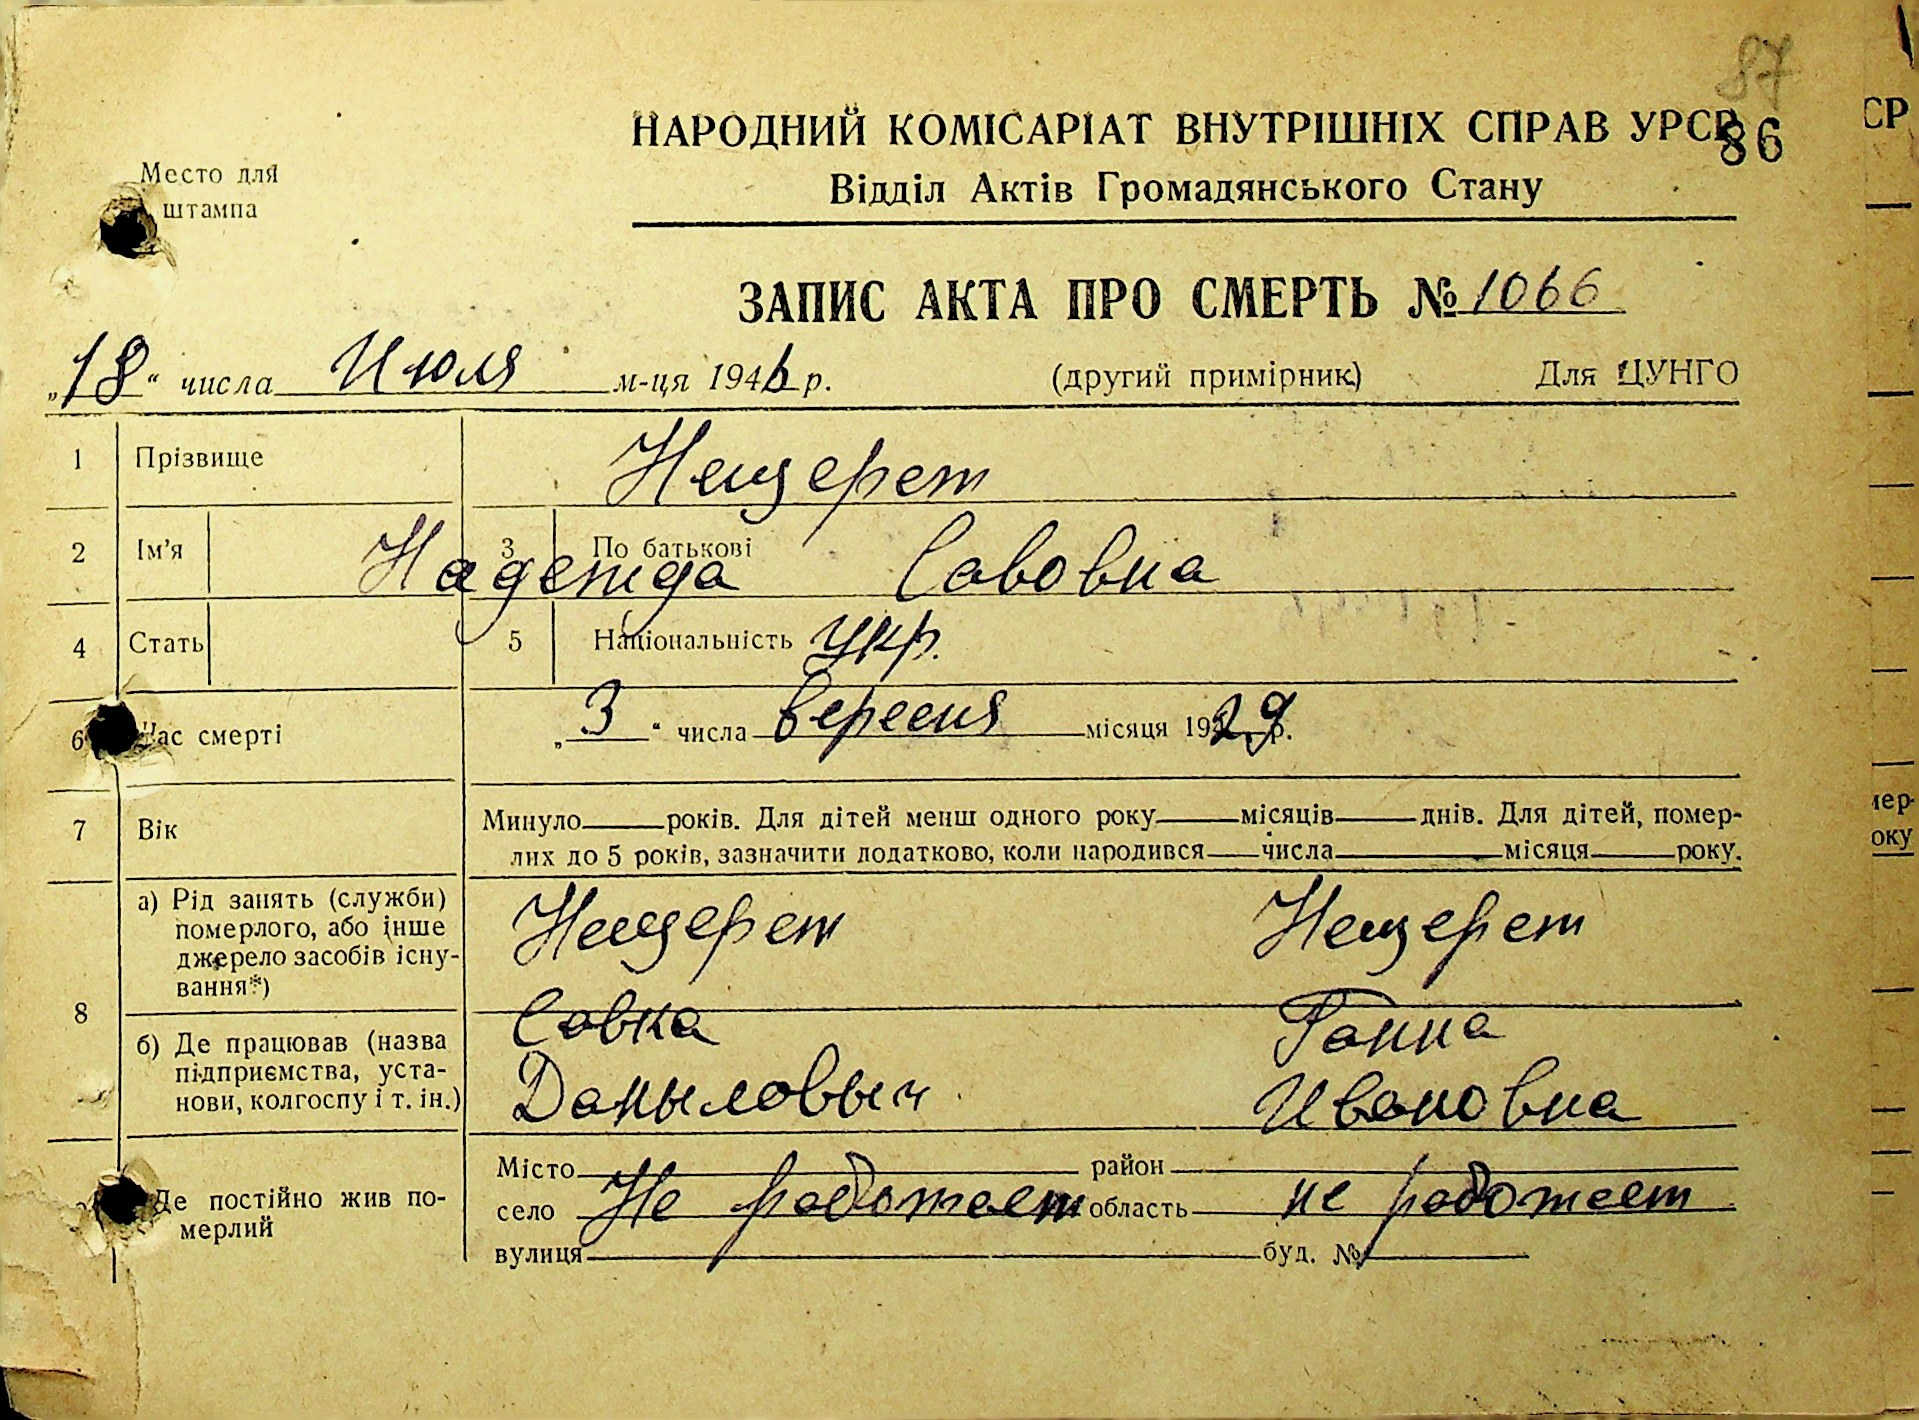 87
НАРОДНИЙ КОМІСАРІАТ ВНУТРІШНІХ СПРАВ УРСР
86
Відділ Актів Громадянського Стану
Место для
штампа
ЗАПИС АКТА ПРО СМЕРТЬ № 1066
„18“ числа Июля м-ця 1946 р. (другий примірник) Для ЦУНГО
1 Прізвище Нещерет
2 Ім'я Надежда 3 По батькові Савовна
4 Стать 5 Національність укр.
6 Час смерті „3“ числа вересня місяця 1929 р.
7 Вік Минуло року. Для дітей менш одного року місяців днів. Для дітей, помер-
лих до 5 років, зазначити додатково, коли народився числа місяця року.
8 а) Рід занять (служби)
померлого, або інше
джерело засобів існу-
вання*)
Нещерет Нещерет
б) Де працював (назва
підприємства, уста-
нови, колгоспу і т. ін.)
Совка Ганна
Данылович Ивановна
Де постійно жив по-
мерлий
Місто район
село Не работает область не работает
вулиця буд. №
СР
мер-
оку